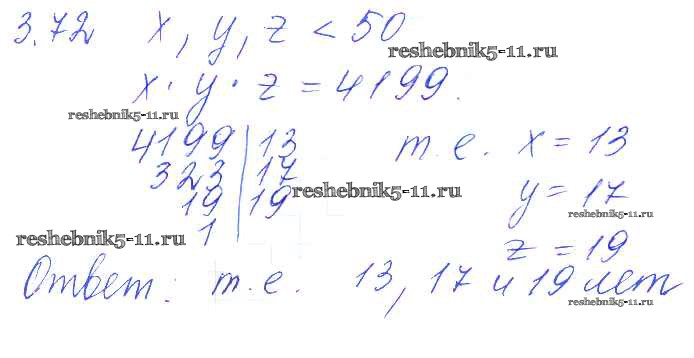 3.72 x, y, z < 50
reshebnik5-11.ru
x · y · z = 4199.
reshebnik5-11.ru
4199 | 13 т.е. x = 13
323 | 17
19 | 19 reshebnik5-11.ru y = 17
reshebnik5-11.ru
1
reshebnik5-11.ru
z = 19
Ответ: т.е. 13, 17 и 19 лет
reshebnik5-11.ru